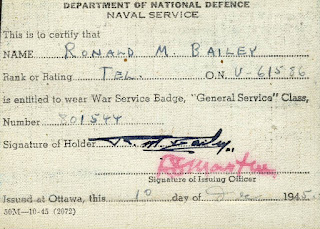 DEPARTMENT OF NATIONAL DEFENCE
NAVAL SERVICE
This is to certify that
NAME RONALD M. BAILEY
Rank or Rating TEL. O.N. V-61586
is entitled to wear War Service Badge, "General Service" Class,
Number 801544
Signature of Holder R. M. Bailey
Signature of Issuing Officer
Issued at Ottawa, this 10 day of 1945
50M—10-45 (2072)